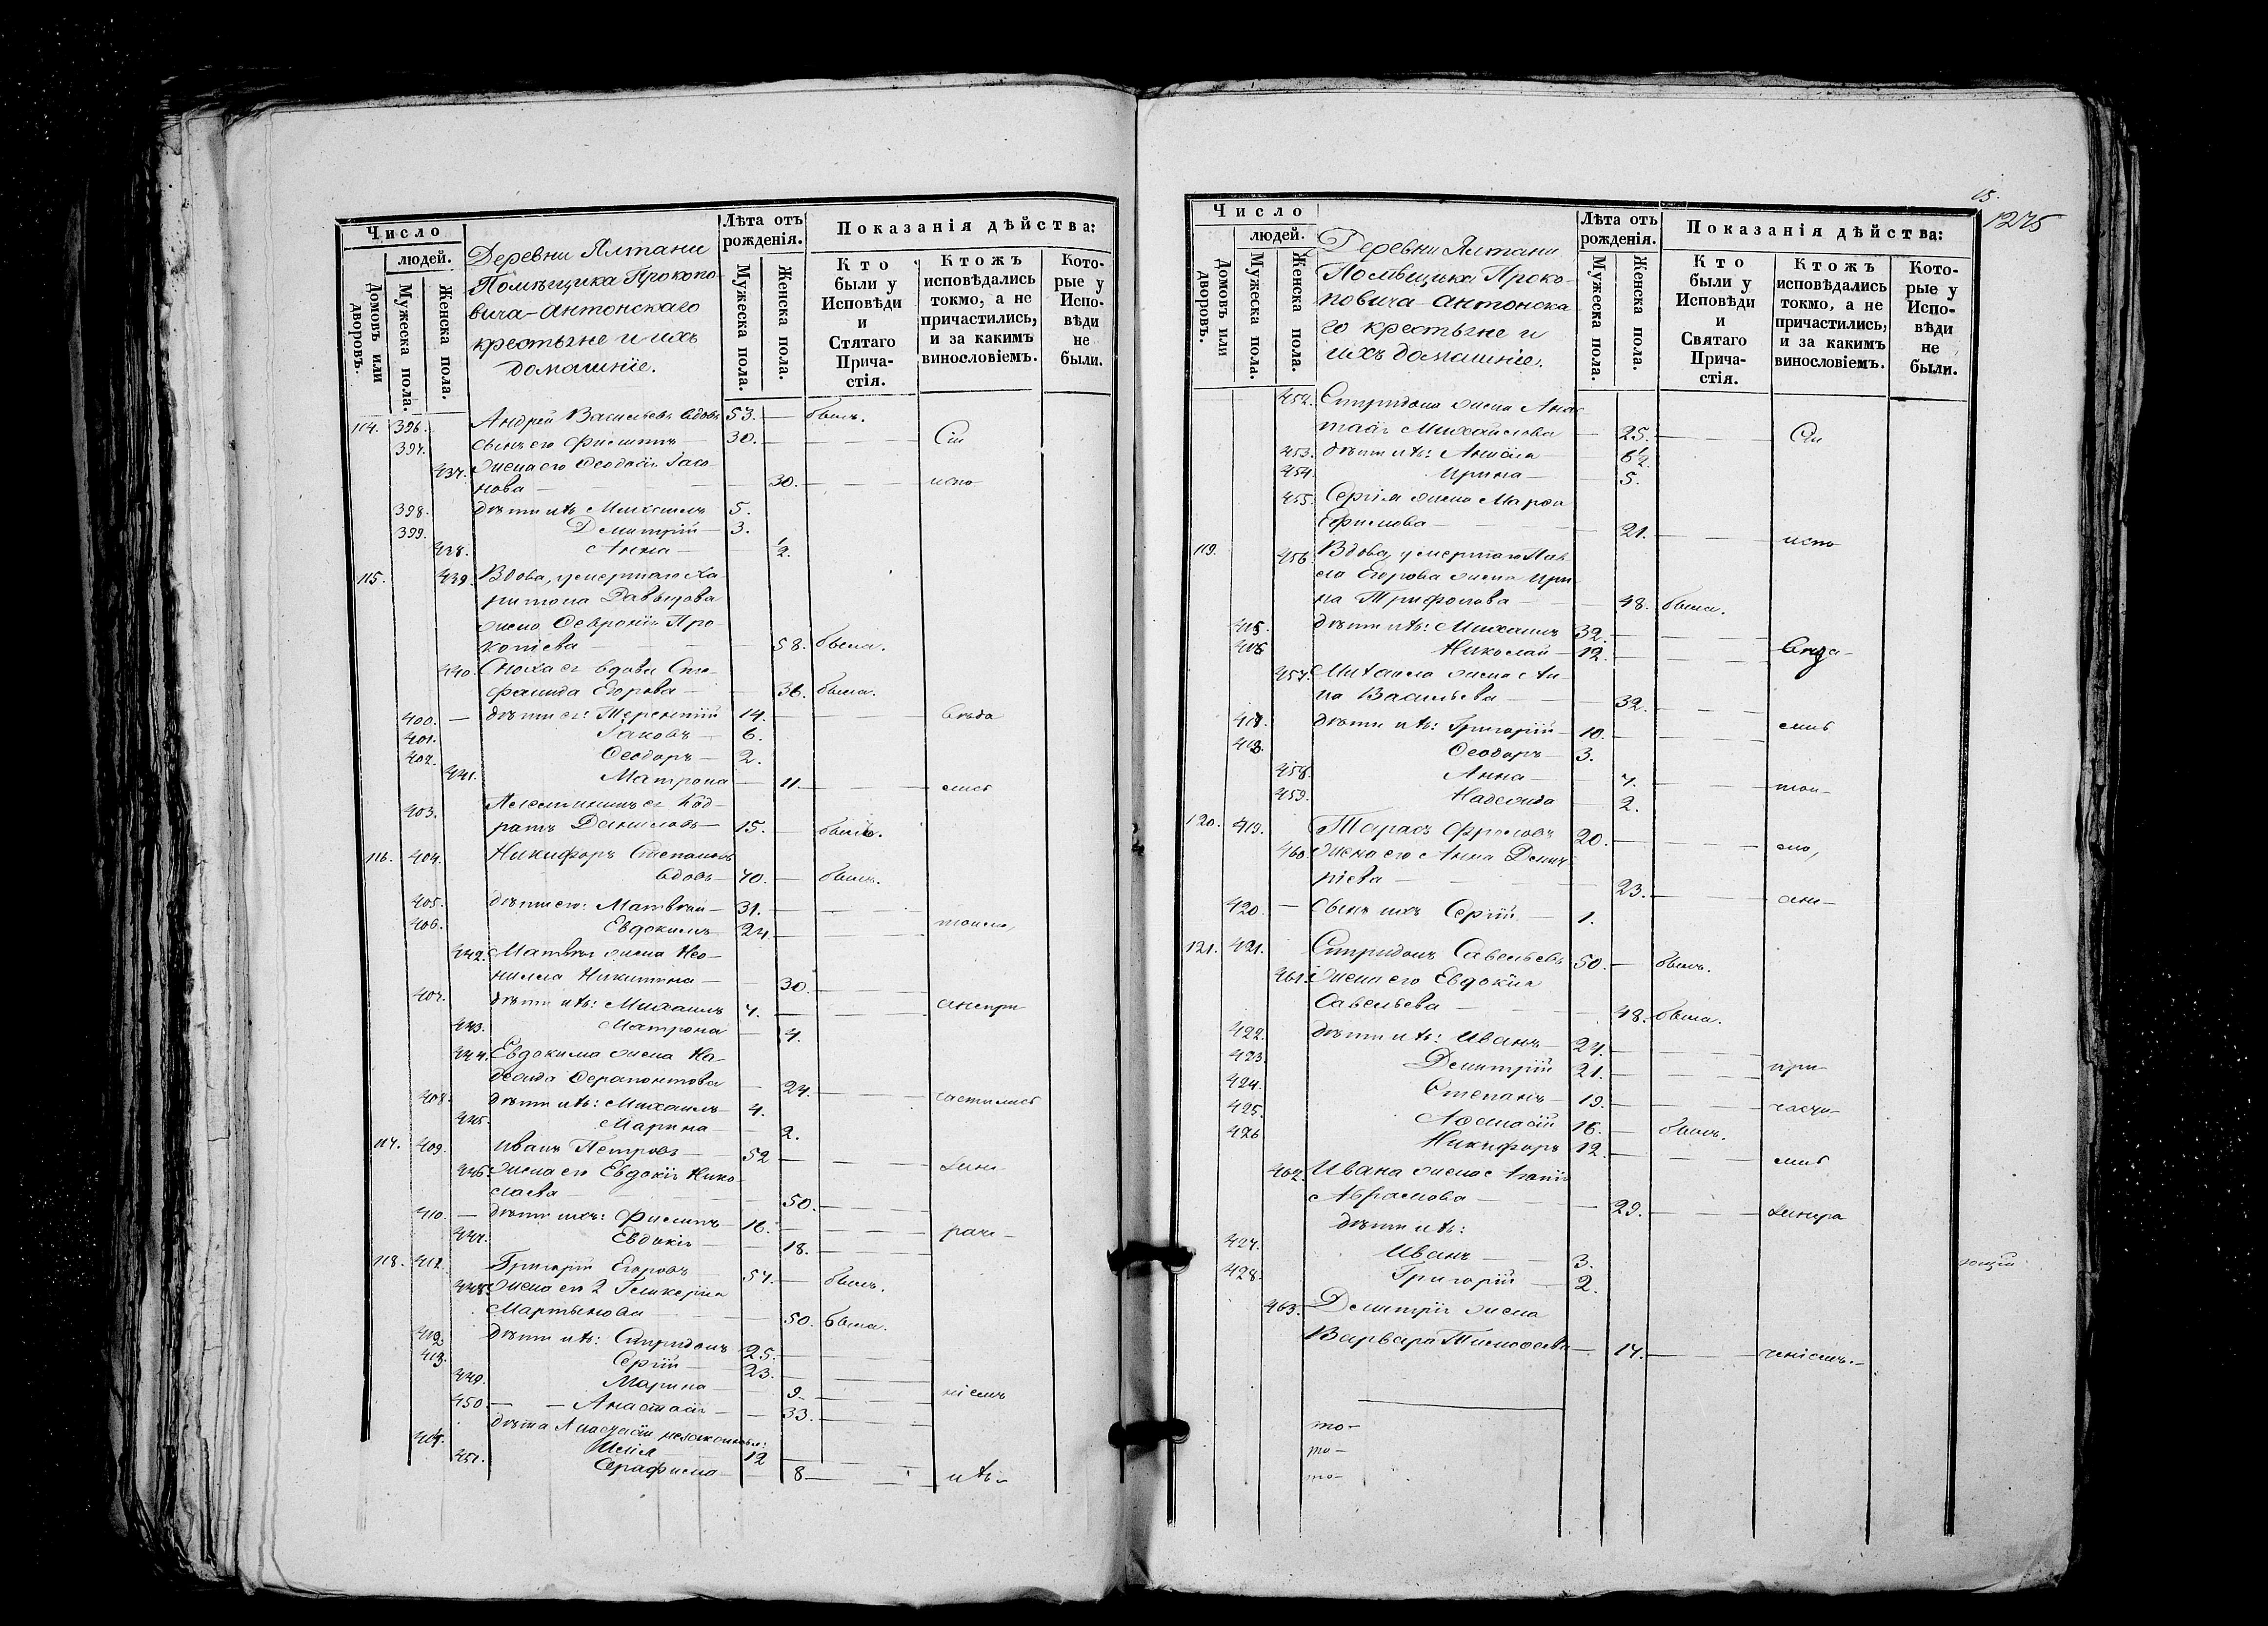 Число
людей.
Домовъ или дворовъ.
Мужеска пола.
Женска пола.
Деревни Ялтани
Помѣщика Прокопо-
вича-Антонскаго
крестьяне и ихъ
домашніе.
Лѣта отъ рожденія.
Мужеска пола.
Женска пола.
Показанія дѣйства:
Кто были у Исповѣди и Стятаго Прича-стія.
Ктожъ исповѣдались токмо, а не причастились, и за какимъ винословіемъ.
Кото-рые у Испо-вѣди не были.
114. 396. Андрей Васильевъ вдовъ 53. — былъ.
397. сынъ его Филиппъ — 30. — Сіи
437. жена его Феодосія Іасо-
нова — 30. — испо-
398. дѣти ихъ Михаилъ 5.
399. Димитрій — 3.
438. Анна — ½.
115. 439. Вдова, умершаго Ха-
ритона Давыдова
жена Февронія Про
копіева — 58. была.
440. Сноха ея вдова Сте-
фанида Егорова — 36. была.
400. — дѣти ея: Терентій 14. — вѣда
401. Іаковъ — 6.
402. Феодоръ — 2.
441. Матрона — 11. — лись
403. Племянникъ ея Код-
ратъ Даниловъ — 15. — былъ.
116. 404. Никифоръ Степановъ
вдовъ — 70. — былъ.
405. дѣти его: Матвѣй — 31. —
406. Евдокимъ 24. — токмо,
442. Матвѣя жена Нео-
нилла Никитина — 30. —
407. дѣти ихъ: Михаилъ 7. — анепри
443. Матрона — 4.
444. Евдокима жена На-
дежда Ферапонтова — 24. — частились
408. дѣти ихъ: Михаилъ 4.
445. Марина — 2.
117. 409. Иванъ Петровъ — 52 —
446. жена его Евдокія Нико
лаева — 50. —
410. — дѣти ихъ: Филиппъ 16. — раче-
447. Евдокія — 18. —
118. 411. Григорій Егоровъ 57. — былъ.
448. жена его 2 Гликерія
Мартынова — 50. была.
412. дѣти ихъ: Спиридонъ 25. —
413. Сергій — 23. —
449. Марина — 9. — ніемъ
450 — — Анастасія — 33. —
дѣти Анастасіи незаконныя:
414. Илія 12 —
451. Серафима — 8 — ихъ-
15.
1275
Число
людей.
Домовъ или дворовъ.
Мужеска пола.
Женска пола.
Деревни Ялтани
Помѣщика Проко-
повича-Антонска
го крестьяне и
ихъ домашніе.
Лѣта отъ рожденія.
Мужеска пола.
Женска пола.
Показанія дѣйства:
Кто были у Исповѣди и Святаго Прича-стія.
Ктожъ исповѣдались токмо, а не причастились, и за какимъ винословіемъ.
Кото-рые у Испо-вѣди не были.
452. Спиридона жена Анас
тасія Михайлова — 25. — Сіи
453. дѣти ихъ: Анисія —
454. Ирина — 5.
455. Сергія жена Марѳа
Ефимова — 21. — испо
119. 456. Вдова, умершаго Пав
ла Егорова жена Ири
на Трифонова — 48. была.
415. дѣти ихъ: Михаилъ 32. —
416 Николай — 12. —
457. Михаила жена Ан-
на Васильева — 32. —
417. дѣти ихъ: Григорій — 10. — лись
418. Феодоръ — 3.
458. Анна — 7. — ток-
459. Надежда 2.
120. 419. Тарасъ Фроловъ 20. — мо,
460. Жена его Анна Дмит
ріева — 23. — ане-
420. — сынъ ихъ Сергій — 1.
121. 421. Спиридонъ Савельевъ 50. — былъ.
461. жена его Евдокія
Савельева — 48. была.
422. дѣти ихъ: Иванъ — 27. —
423 Димитрій 21. — при-
424. Степанъ — 19. — части-
425. Аѳанасій 16. — былъ.
426 Никифоръ 12. — лись
462. Ивана жена Агапія
Абрамова — 29. —
дѣти ихъ:
427. Иванъ — 3.
428. Григорій — 2.
463. Димитрія жена
Варвара Тимоѳеева — 17. — ченіемъ.-
то-
то-
то-